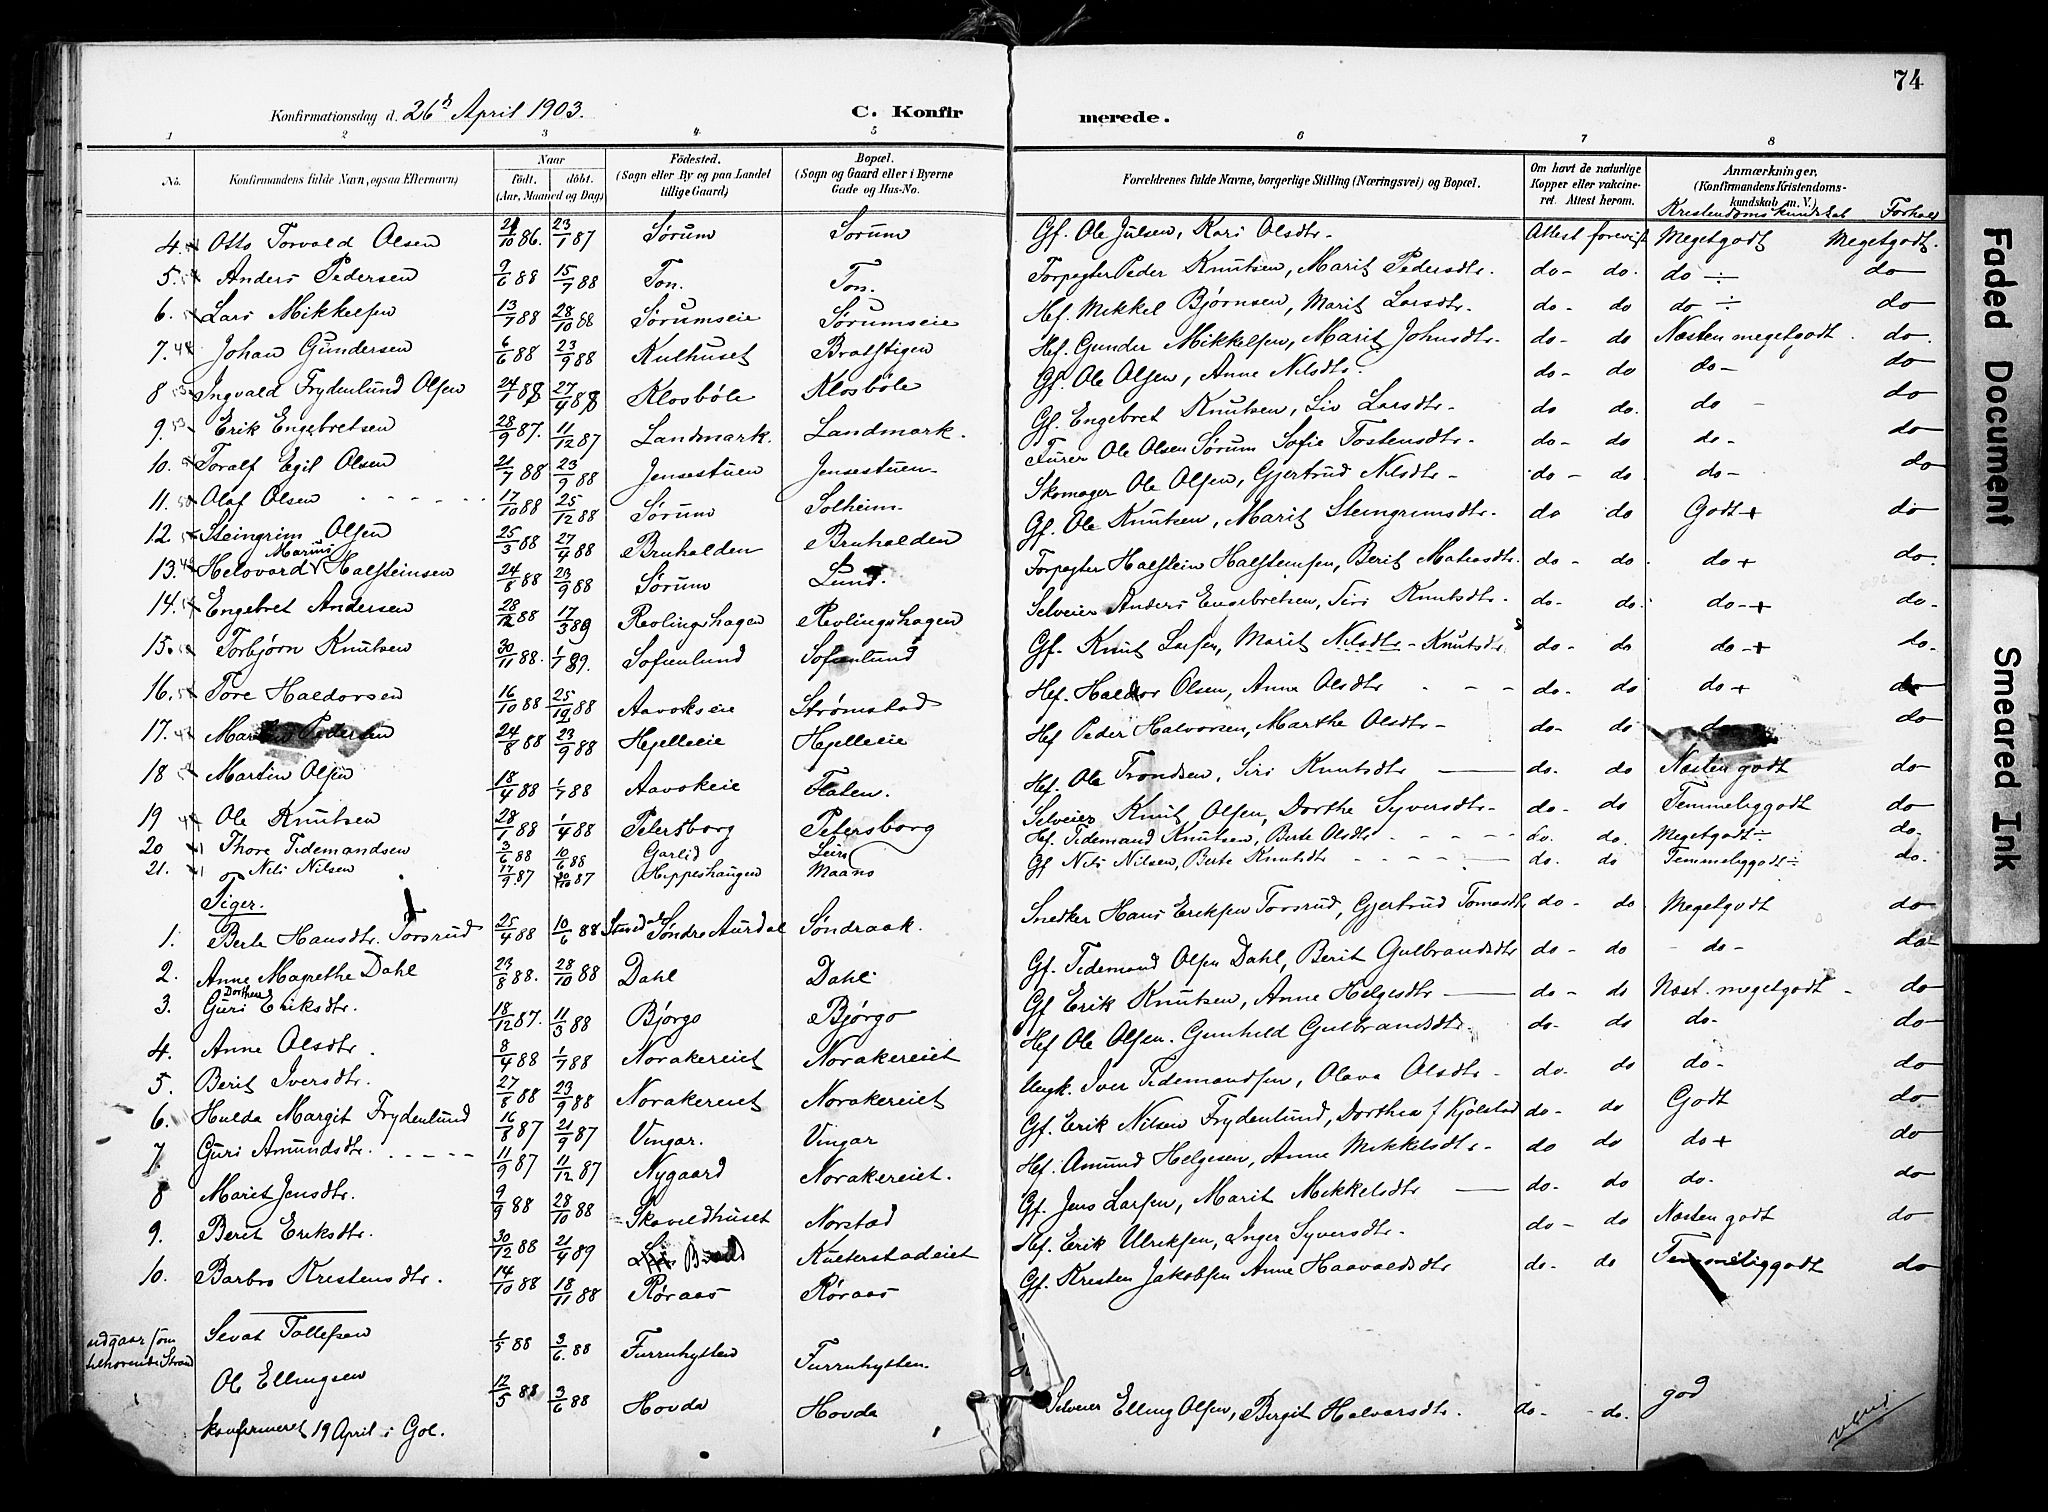 74
Konfirmationsdag d. 26d April 1903. C. Konfirmerede.
1 2 3 4 5 6 7 8
No. Konfirmandens fulde Navn, ogsaa Efternavn) Naar født. døbt. (Aar, Maaned og Dag) Födested. (Sogn eller By og paa Landet tillige Gaard) Bopæl. (Sogn og Gaard eller i Byerne Gade og Hus-No. Forældrenes fulde Navne, borgerlige Stilling (Næringsvei) og Bopæl. Om havt de naturlige Kopper eller vakcineret. Attest herom. Anmærkninger. (Konfirmandens Kristendomskundskab m. V.)
Kristendomskundskab Forhold
4. Otto Torvald Olsen 21/10 86. 23/1 87 Sørum Sorum Gf. Ole Julsen, Kari Olsdtr- Attest forevist Megetgodt Megetgodt.
5. Anders Pedersen 9/6 88 15/7 88 Ton. Ton. Forpagter Peder Knutsen, Marit Pedersdtr. do- do. do ÷ do
6. Lars Mikkelsen 13/7 88 28/10 88 Sørumseie Sørumseie Hf. Mikkel Bjørnsen, Marit Larsdtr. do- do do ÷ do
7. Johan Gundersen 6/6 88 23/9 88 Kulhuset Bratstigen Hf. Gunder Mikkelsen, Marit Johnsdtr. do- do Næsten megetgodt. do.
8 Ingvald Frydenlund Olsen 24/1 88 27/4 88 Klosbøle Klosbøle Gf. Ole Olsen, Anne Nilsdtr. do- do do- do
9. Erik Engebretsen 28/9 87. 11/12 87 Landmark. Landmark. Gf. Engebret Knutsen, Liv Larsdtr- do do. do - do
10. Toralf Egil Olsen 21/7 88 23/9 88 Jensestuen Jensestuen- Furer Ole Olsen Sørum Sofie Tostensdtr- do- do do- do
11. Olaf Olsen 17/10 88 25/12 88 Sørum Solheim. Skomager Ole Olsen, Gjertrud Nilsdtr- do- do. do- do
12. Steingrim Olsen 25/3 88 27/4 88 Bruhalden Bruhalden Gf. Ole Knutsen, Marit Steingrimsdtr. do do Godt+ do
13. Helovard Marius Halsteinsen 24/8 88 23/9 88 Sørum Lund. Forpagter Halstein Halsteinsen, Berit Matiasdtr. do- do do+ do.
14. Engebret Andersen 28/12 88 17/3 89 Revlingshagen Revlingshagen Selveier Anders Engebretsen, Siri Knutsdtr- do- do. do-+ do-
15. Torbjørn Knutsen 30/11 88. 1/7 89. Sofienlund Sofienlund Gf. Knut Larsen, Marit Nilsdtr- Knutsdtr do- do do-+ do-
16. Tore Haldorsen 16/10 88 25/12 88 Aavokseie Strømstad Hf. Haldor Olsen, Anne Olsdtr - - - do- do do+ do
17. Pedersen 24/8 88 23/9 88 Hjelleeie Hjelleeie Hf Peder Halvorsen, Marthe Olsdtr- do- do do do
18 Martin Olsen 18/4 88 1/7 88 Aavokeie Flaten. Hf. Ole Trondsen, Siri Knutsdtr do- do Næsten godt do
19 Ole Knutsen 28/1 88 1/4 88 Petersborg Petersborg Selveier Knut Olsen, Dorthe Syversdtr- do- do Temmeliggodt do
20 Thore Tidemandsen 3/6 88 10/6 88 Garlid Leira Hf. Tidemand Knutsen, Berte Olsdtr do. do. Megetgodt÷ do-
21. Nils Nilsen 17/9 87 30/10 87 Hippeshaugen Maano Gf Nils Nilsen, Berte Knutsdtr do. do Temmeliggodt÷ do.
Piger.
1. Berte Hansdtr. Torsrud 25/4 88 10/6 88 Søndre Aurdal Søndraak. Snedker Hans Eriksen Torsrud, Gjertrud Tomasdtr do- do. Megetgodt do
2. Anne Magrethe Dahl 23/8 88. 28/10 88 Dahl Dahl. Gf. Tidemand Olsen Dahl, Berit Gulbrandsdtr do- do - do- do
3. Guri Dorthea Eriksdtr. 18/12 87. 11/3 88 Bjørgo Bjørgo Gf Erik Knutsen, Anne Helgesdtr do- do Næst. megetgodt - do
4. Anne Olsdtr. 8/4 88 1/7 88 Norakereiet Norakereiet Hf Ole Olsen. Gunhild Gulbrandsdtr. do- do do- do
5. Berit Iversdtr. 27/8 88 23/9 88 Norakereiet Norakereiet Ungk. Iver Tidemandsen, Olava Olsdtr- do- do do- do
6. Hulda Margit Frydenlund 16/8 87 21/9 87 Vingar. Vingar Gf. Erik Nilsen Frydenlund, Dorthea f Kjolstad do- do Godt do
7 Guri Amundsdtr. 11/9 87 11/12 87 Nygaard Norakereiet. Hf. Amund Helgesen, Anne Mikkelsdtr- do do do+ do
8 Marit Jensdtr. 9/9 88 28/10 88 Skoveldhuset Norstad Gf. Jens Larsen, Marit Mikkelsdtr do- do do. do
9. Berit Eriksdtr. 30/12 88 21/4 89 Kueterstadeiet Hf. Erik Ulriksen, Inger Syversdtr. do- do Næsten godt do
10. Barbro Kristensdtr. 14/10 88 18/11 88 Røraas Røraas Gf. Kristen Jakobsen Anne Haavaldsdtr do- do Temmeliggodt do
udgaar som tilhørende Strand Sevat Tollefsen 1/5 88 3/6. 88 Furruhytten Furruhytten.
Ole Ellingsen 12/5 88 3/6 88 Hovda Hovda Selveier Elling Olsen, Bergit Halvorsdtr. do- - do. god
konfirmeret 19 April i Gol.
Faded Document
Smeared Ink